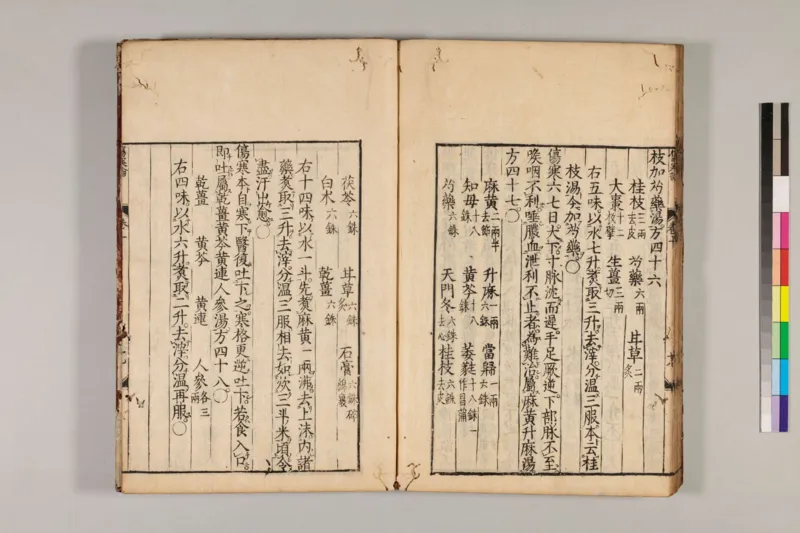 枝加芍藥湯方四十六
桂枝三兩去皮 芍藥六兩 甘草二兩炙
大棗十二枚擘 生薑三兩切
右五味以水七升煑取三升去滓分溫三服本云桂
枝湯今加芍藥〇
傷寒六七日大下寸脉沈而遲手足厥逆下部脉不至
喉咽不利唾膿血泄利不止者爲難治屬麻黄升麻湯
方四十七〇
麻黄二兩半去節 升麻一兩六銖 當歸一兩六銖
知母十八銖 黄芩十八銖 萎蕤十八銖一作菖蒲
芍藥六銖 天門冬六銖去心 桂枝六銖去皮
茯苓六銖 甘草六銖炙 石膏六銖碎綿裹
白术六銖 乾薑六銖
右十四味以水一斗先煑麻黄一兩沸去上沫内諸
藥煑取三升去滓分溫三服相去如炊三斗米頃令
盡汗出愈〇
傷寒本自寒下醫復吐下之寒格更逆吐下若食入口
即吐屬乾薑黄芩黄連人參湯方四十八〇
乾薑 黄芩 黄連 人參各三兩
右四味以水六升煑取二升去滓分溫再服〇